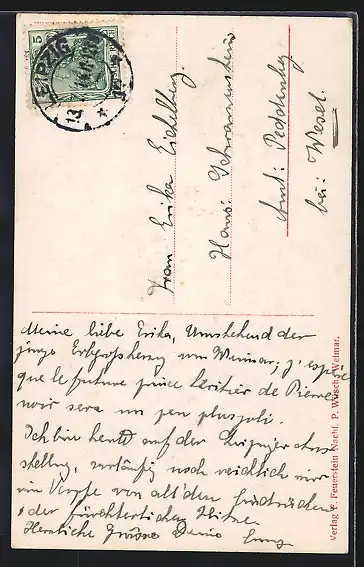 LEIPZIG
13
5 5
Frau Erika Eichelberg.
Haus: Schwanenstein
Amt: Peddenberg
bei: Wesel.
Meine liebe Erika, Umstehend der
junge Erbgrossherzog von Weimar; j'espère
que le future prince héritier de Pierre
noir sera un peu plus joli.
Ich bin heute auf der Leipziger Aus-
stellung, vorläufig noch reichlich wirr
im Kopfe von all' den Eindrücken
der fürchterlichen Hitze.
Herzliche Grüsse Deine
Verlag F. Feuerstein Nachf. P. Wüsche, Weimar.